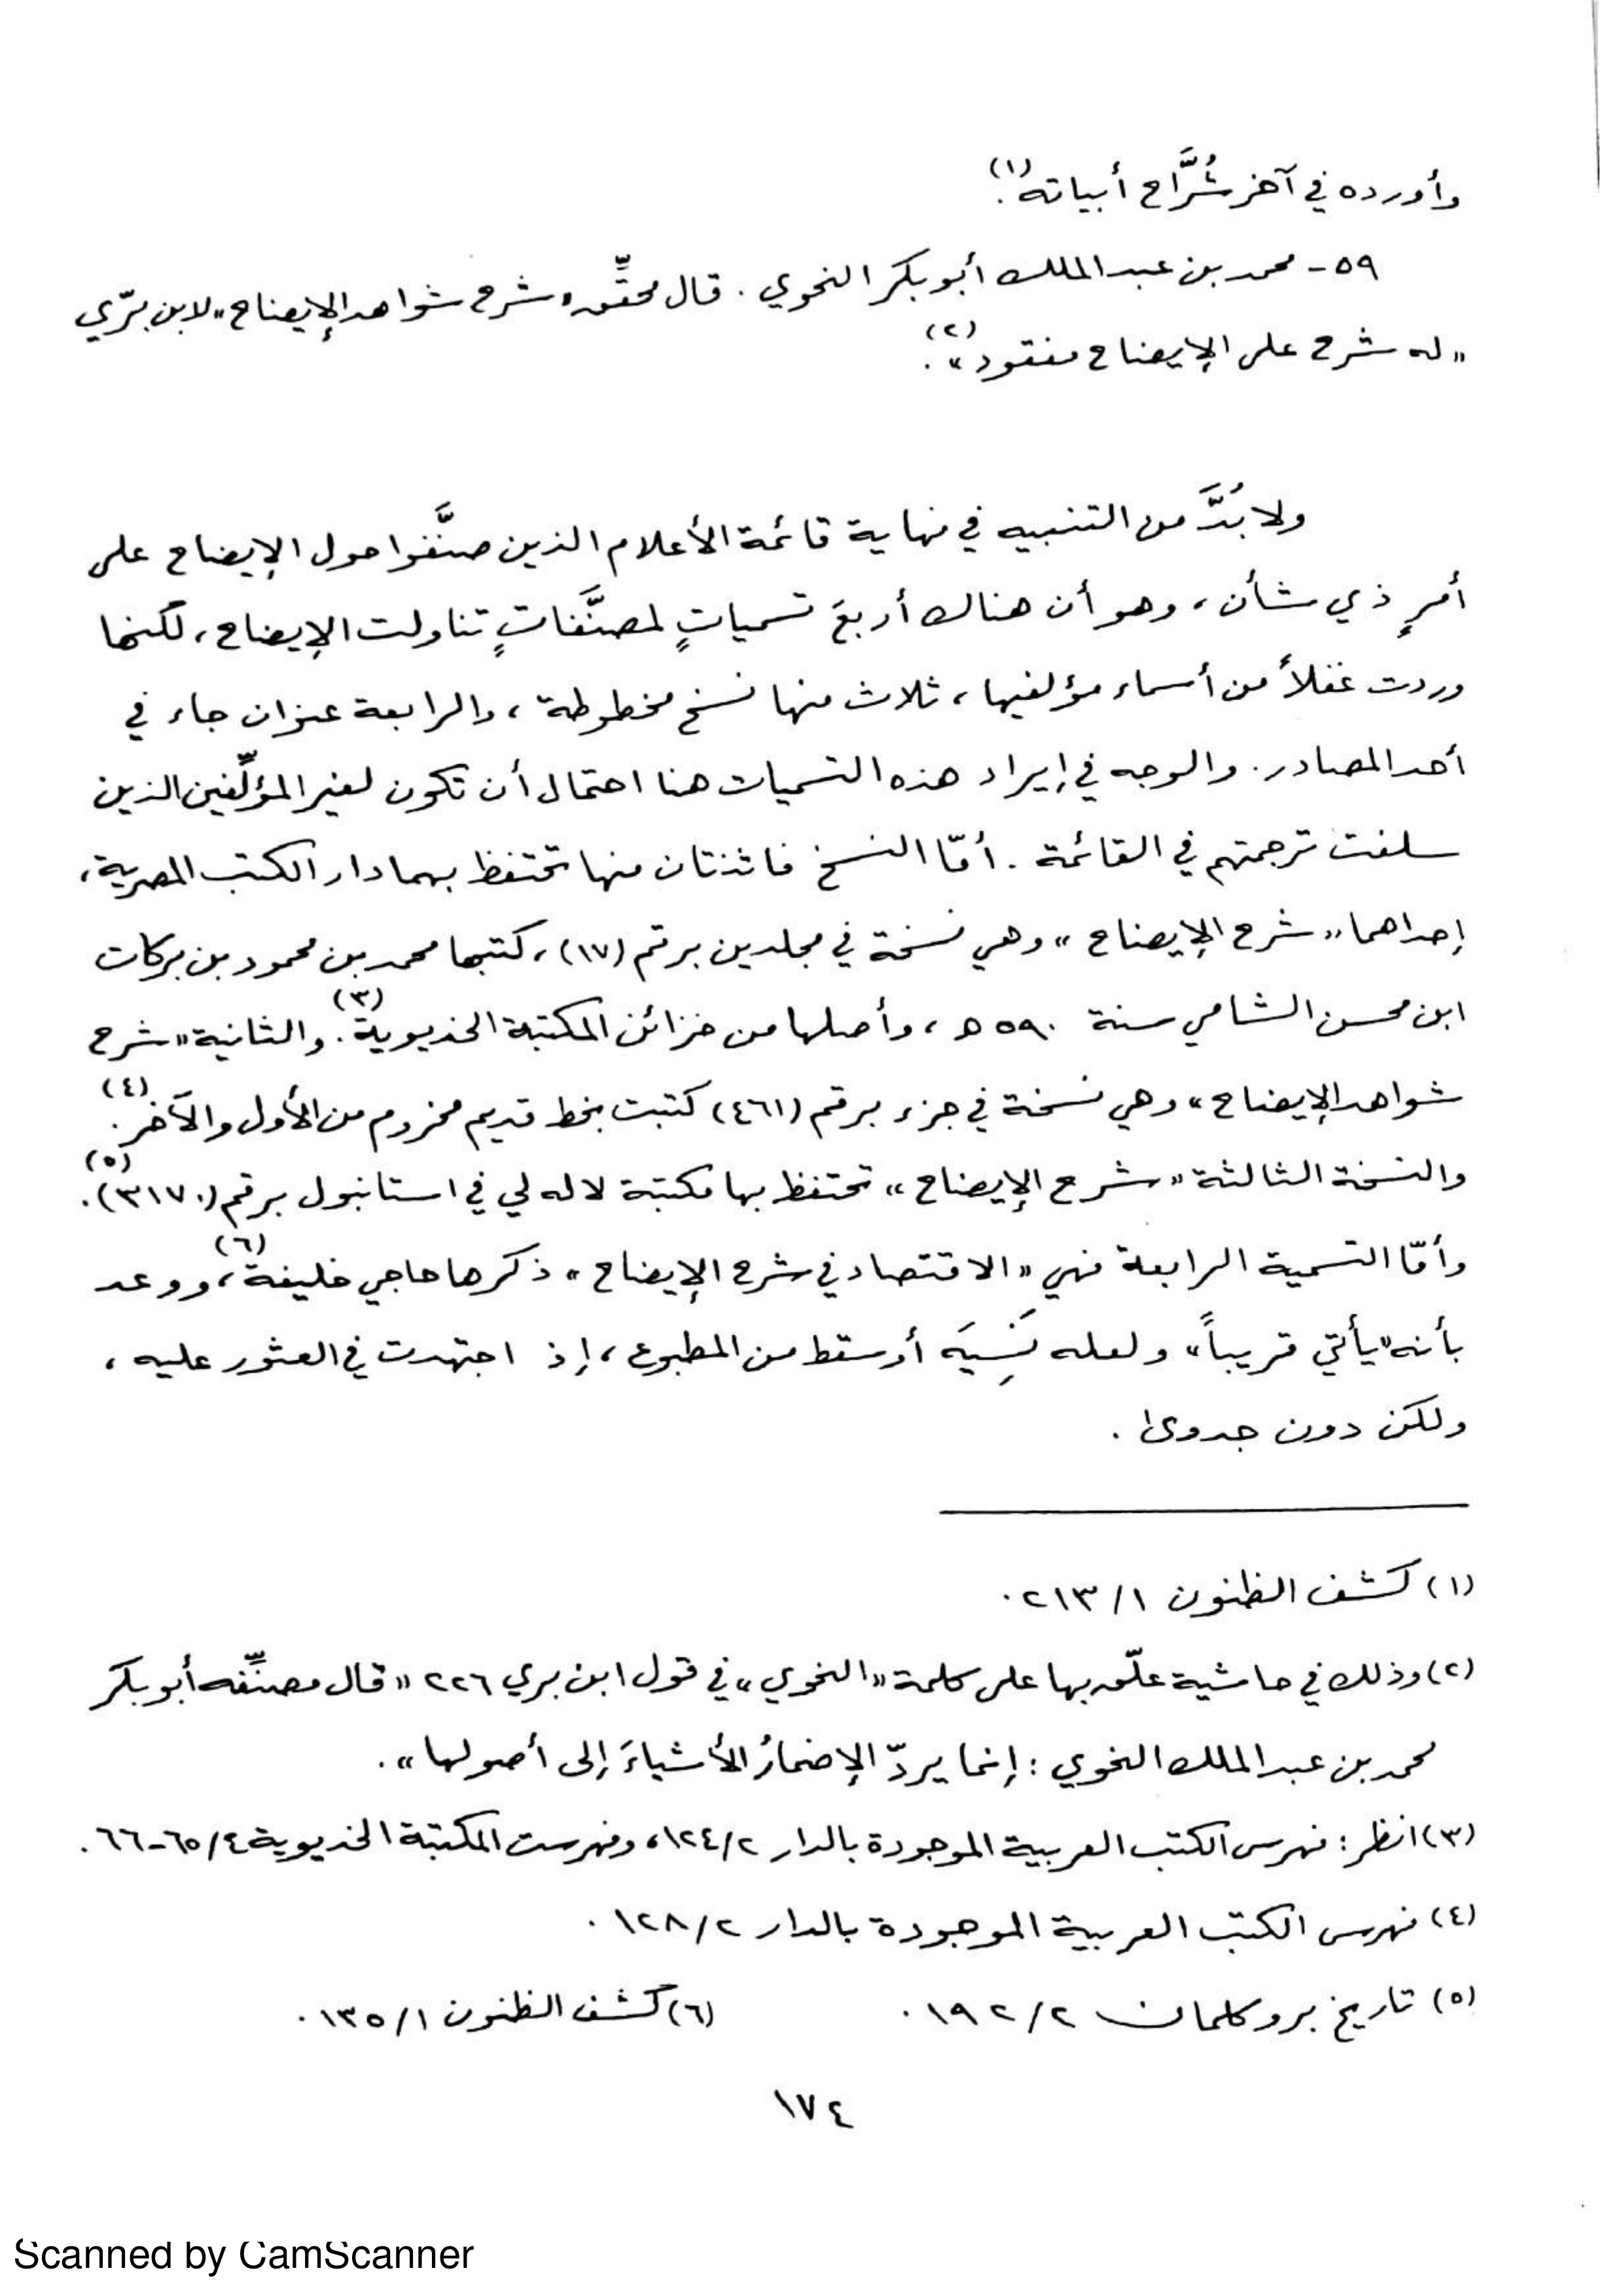 وأورده في آخر شُرَّاح أبياته(١).
٥٩ - محمد بن عبد الملك أبو بكر النحوي. قال محقِّق «شرح شواهد الإيضاح» لابن برّي
«له شرح على الإيضاح مفقود»(٢).
ولا بُدَّ من التنبيه في نهاية قائمة الأعلام الذين صنَّفوا حول الإيضاح على
أمرٍ ذي شأن، وهو أن هناك أربعَ تسمياتٍ لمصنَّفاتٍ تناولت الإيضاح، لكنها
وردت غفلاً من أسماء مؤلفيها، ثلاث منها نسخ مخطوطة، والرابعة عنوان جاء في
أحد المصادر. والوجه في إيراد هذه التسميات هنا احتمال أن تكون لغير المؤلِّفين الذين
سلفت ترجمتهم في القائمة. أمّا النسخ فاثنتان منها تحتفظ بهما دار الكتب المصرية،
إحداهما «شرح الإيضاح» وهي نسخة في مجلدين برقم (١٧)، كتبها محمد بن محمود بن بركات
ابن محسن الشامي سنة ٥٩٠ هـ، وأصلها من خزائن المكتبة الخديوية(٣). والثانية «شرح
شواهد الإيضاح» وهي نسخة في جزء برقم (٤٦١) كتبت بخط قديم مخروم من الأول والآخر(٤).
والنسخة الثالثة «شرح الإيضاح» تحتفظ بها مكتبة لاله لي في استانبول برقم (٣١٧٠)(٥).
وأمّا التسمية الرابعة فهي «الاقتصاد في شرح الإيضاح» ذكرها حاجي خليفة(٦)، ووعد
بأنه «يأتي قريباً» ولعله نَسِيَه أو سقط من المطبوع، إذ اجتهدت في العثور عليه،
ولكن دون جدوى.
(١) كشف الظنون ١/ ٢١٣.
(٢) وذلك في حاشية علّق بها على كلمة «النحوي» في قول ابن بري ٢٢٦ «قال مصنِّفه أبو بكر
محمد بن عبد الملك النحوي: إنما يردّ الإضمارُ الأشياءَ إلى أصولها».
(٣) انظر: فهرس الكتب العربية الموجودة بالدار ٢/ ١٢٤، وفهرست المكتبة الخديوية ٤/ ٦٥-٦٦.
(٤) فهرس الكتب العربية الموجودة بالدار ٢/ ١٢٨.
(٥) تاريخ بروكلمان ٢/ ١٩٢. (٦) كشف الظنون ١/ ١٣٥.
١٧٤
Scanned by CamScanner